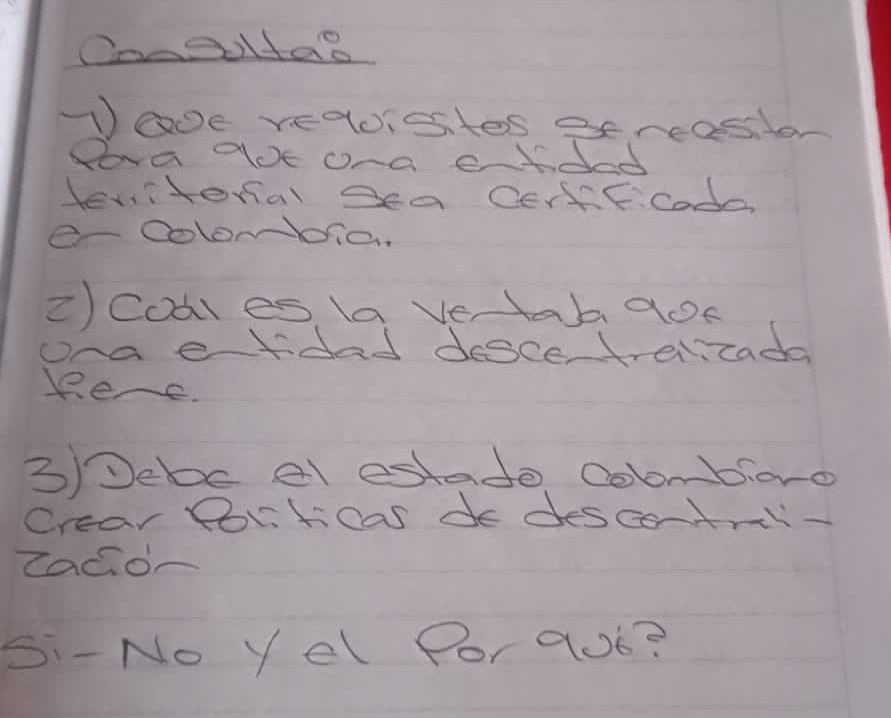 Consulta:
1) Que requisitos se necesitan
Para que una entidad
territorial sea Certificada
en Colombia.
2) Cual es la ventaja que
una entidad descentralizada
tiene.
3) Debe el estado Colombiano
Crear Politicas de descentrali-
zación
Si-No y el Por qué?